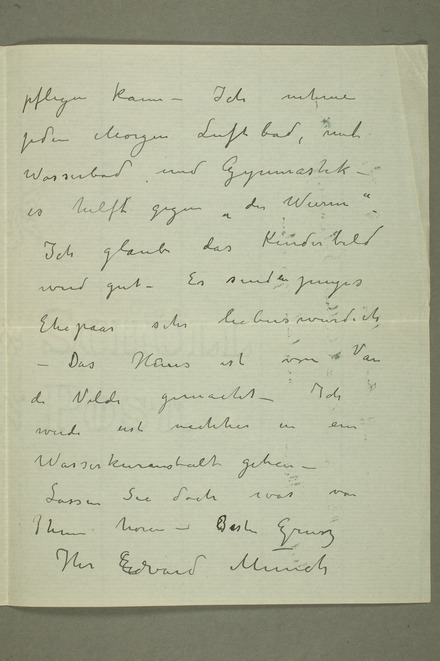 pflegen kann – Ich nehme
jeden Morgen Luftbad, und
Wasserbad und Gymnastik –
es hilft gegen „den Wurm“
Ich glaube das Kinderbild
wird gut – Es sind junges
Ehepaar sehr liebenswürdich,
– Das Haus ist von Van
de Velde gemacht – Ich
werde erst nachher in ein
Wasserkuranstalt gehen –
Lassen Sie doch was von
Ihnen horen – Beste Gruss
Ihr Edvard Munch